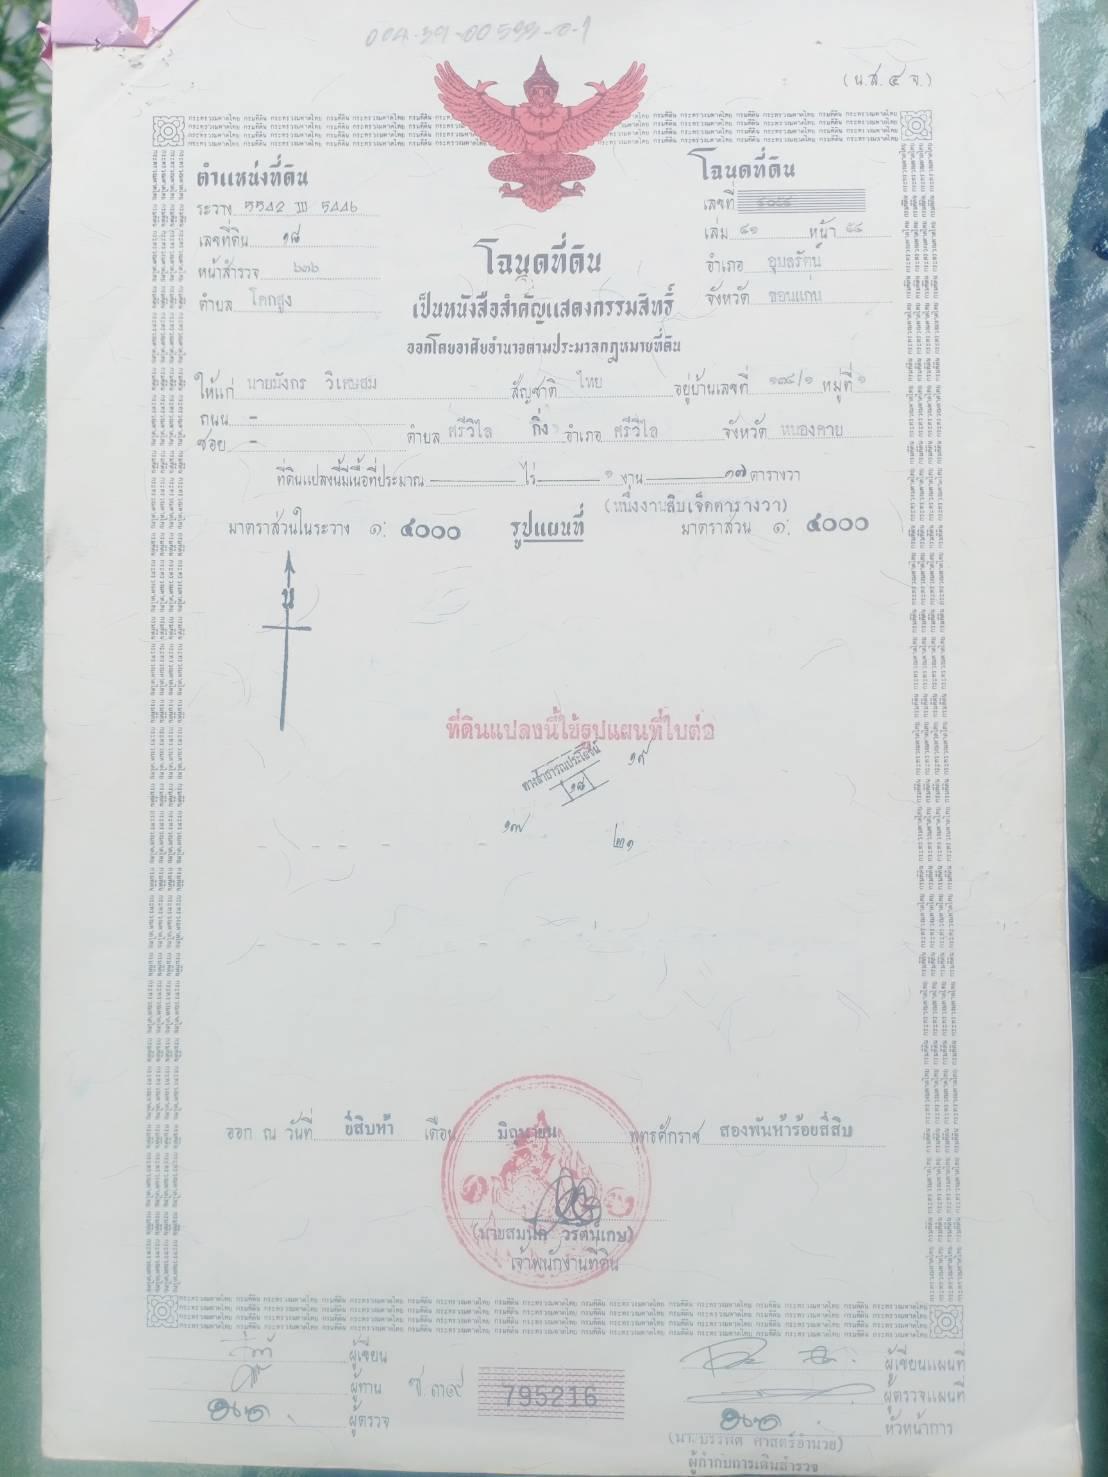 (น.ส. ๔ จ.)
ตำแหน่งที่ดิน
ระวาง 5542 III 5446
เลขที่ดิน ๑๘
หน้าสำรวจ ๖๓๖
ตำบล โคกสูง
โฉนดที่ดิน
เลขที่
เล่ม ๔๑ หน้า ๕๔
อำเภอ อุบลรัตน์
จังหวัด ขอนแก่น
โฉนดที่ดิน
เป็นหนังสือสำคัญแสดงกรรมสิทธิ์
ออกโดยอาศัยอำนาจตามประมวลกฎหมายที่ดิน
ให้แก่ นายมังกร วิเศษสม สัญชาติ ไทย อยู่บ้านเลขที่ ๑๓๔/๑ หมู่ที่ ๑
ถนน -
ซอย - ตำบล ศรีวิไล กิ่ง อำเภอ ศรีวิไล จังหวัด หนองคาย
ที่ดินแปลงนี้มีเนื้อที่ประมาณ ไร่ ๑ งาน ๑๗ ตารางวา
(หนึ่งงานสิบเจ็ดตารางวา)
มาตราส่วนในระวาง ๑: ๔๐๐๐ รูปแผนที่ มาตราส่วน ๑: ๔๐๐๐
น
ที่ดินแปลงนี้ใช้รูปแผนที่ใบต่อ
ทางสาธารณประโยชน์ ๑๙
๑๘
๑๗ ๒๑
ออก ณ วันที่ ยี่สิบห้า เดือน มิถุนายน พุทธศักราช สองพันห้าร้อยสี่สิบ
(นายสมนึก วรัตน์เกษ)
เจ้าพนักงานที่ดิน
ผู้เขียน
ผู้ทาน
ผู้ตรวจ
ซ.๓๙ 795216
ผู้เขียนแผนที่
ผู้ตรวจแผนที่
หัวหน้าการ
(นายบรรพต ศาสตร์อำนวย)
ผู้กำกับการเดินสำรวจ